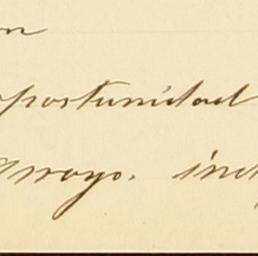 n
oportunidad
Arroyo. ind